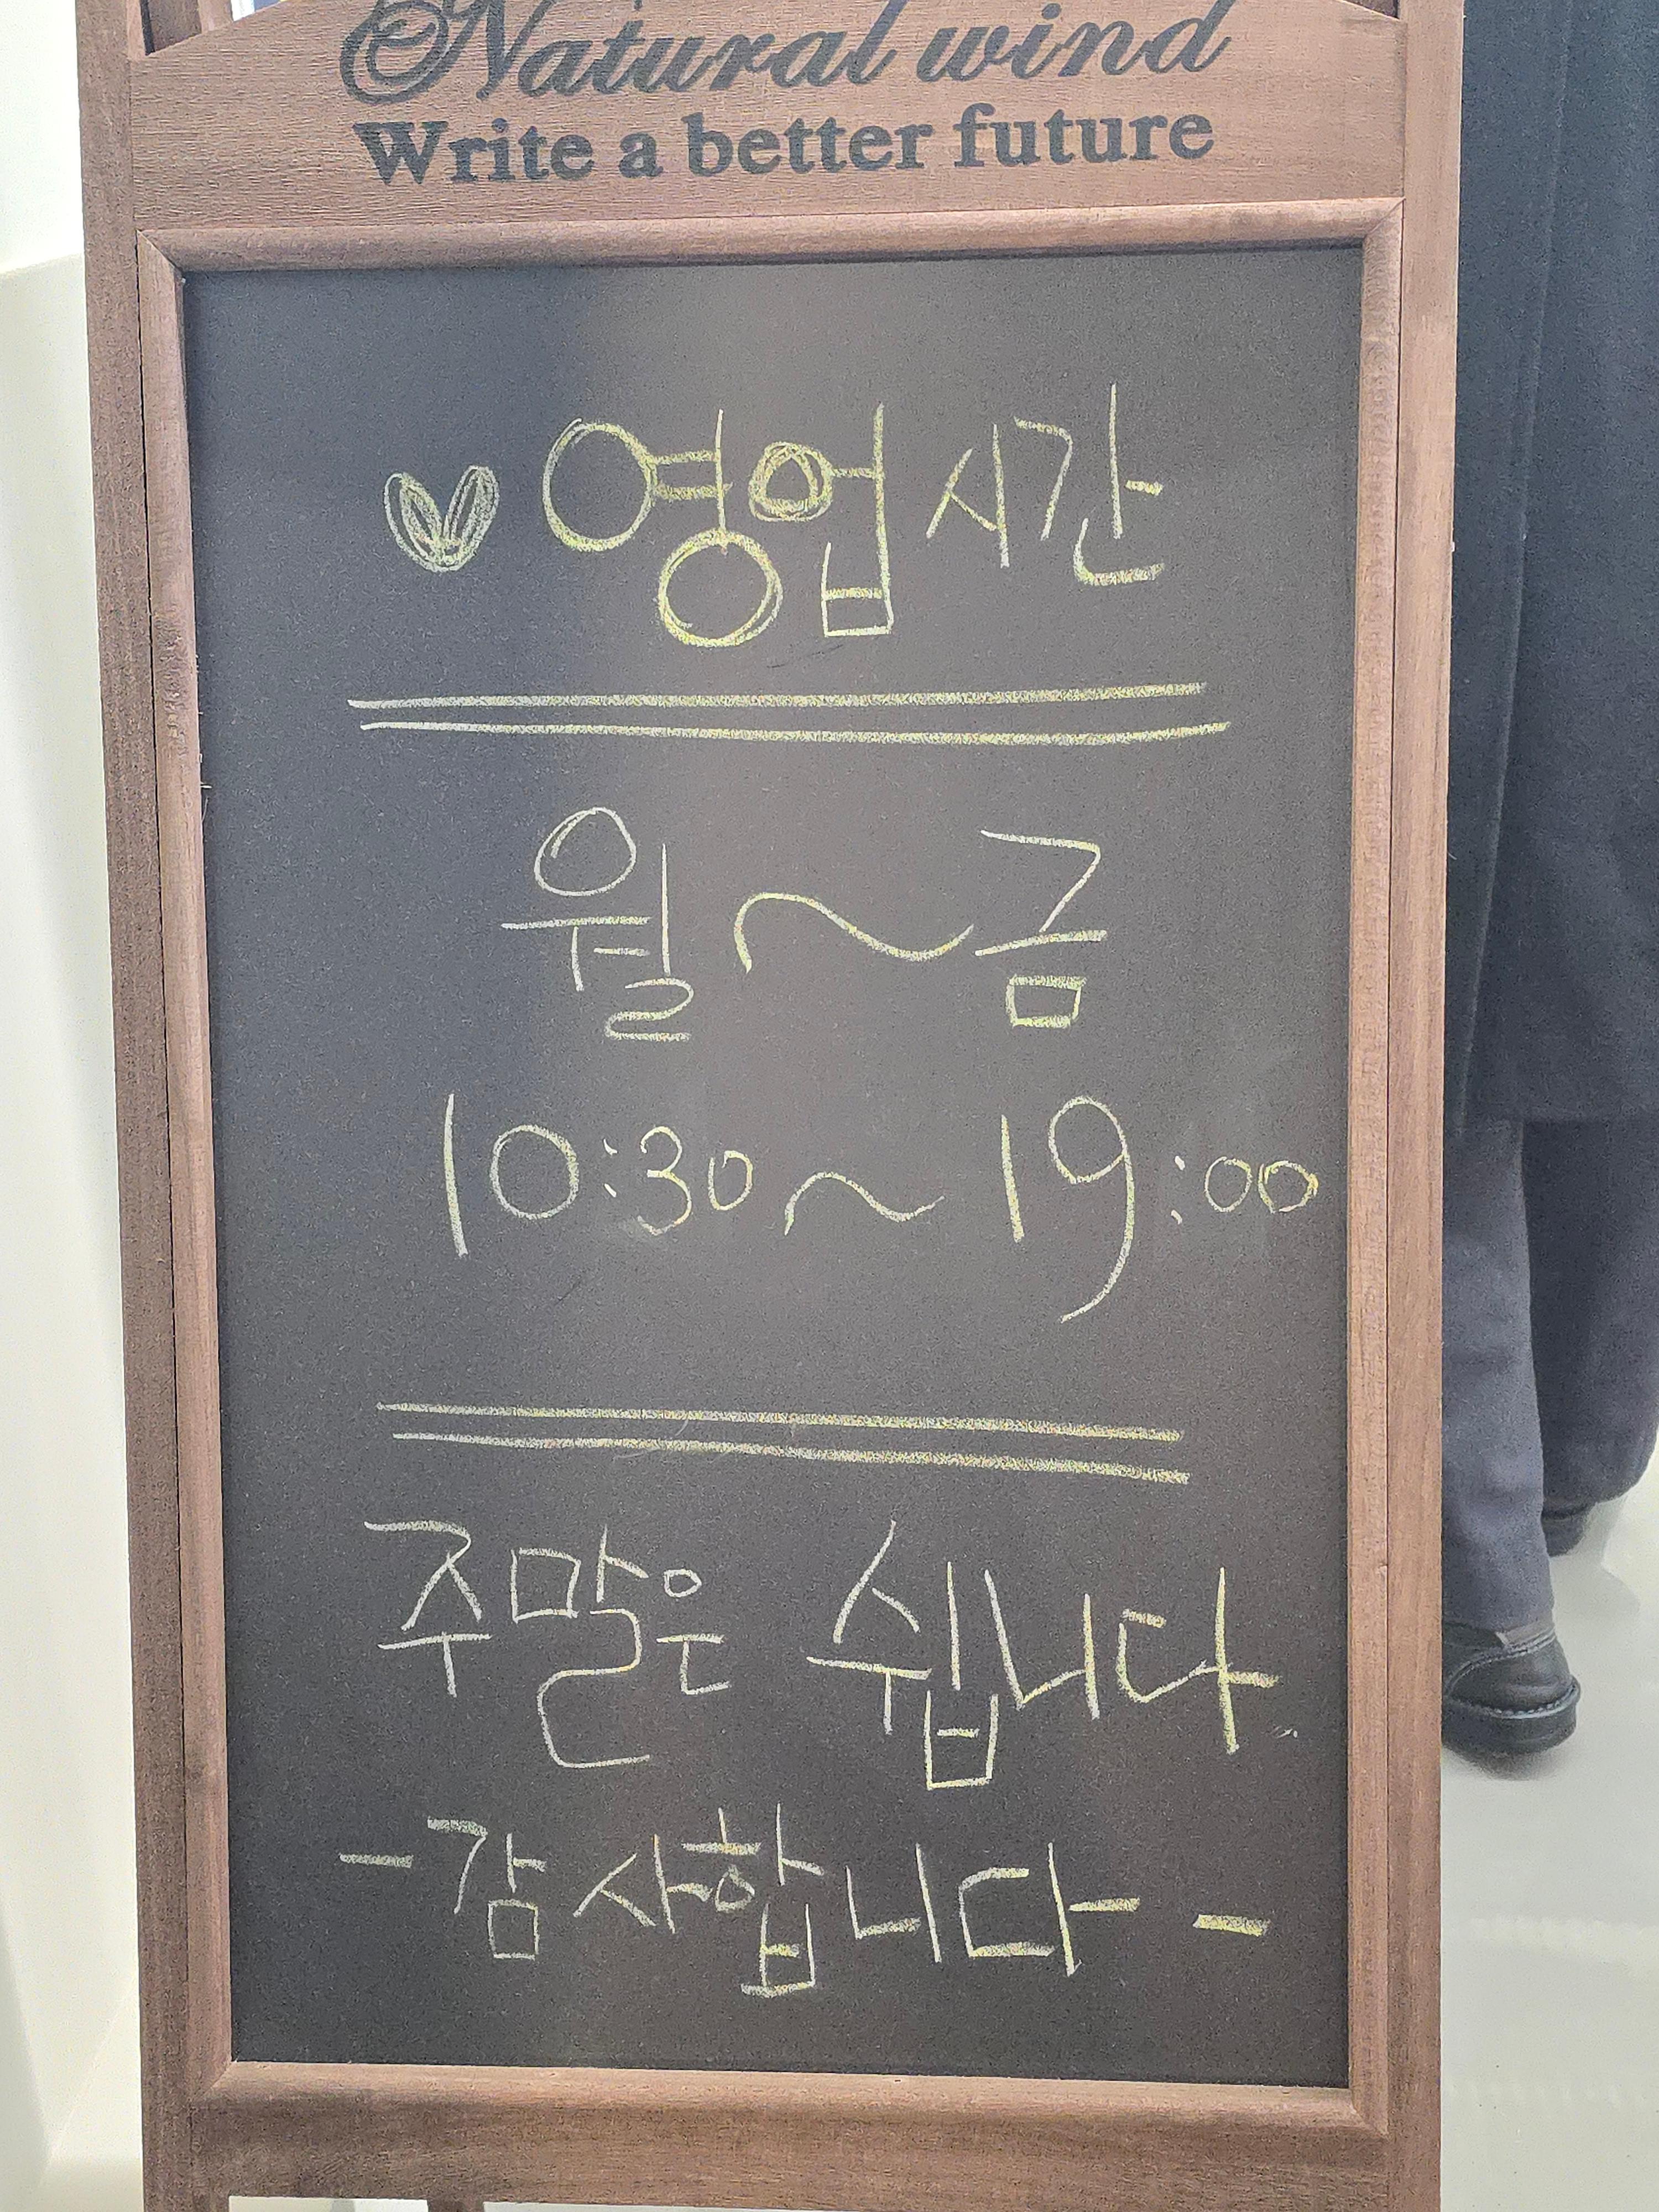 Natural wind
Write a better future
영업시간
월~금
10:30~19:00
주말은 쉽니다.
-감사합니다-